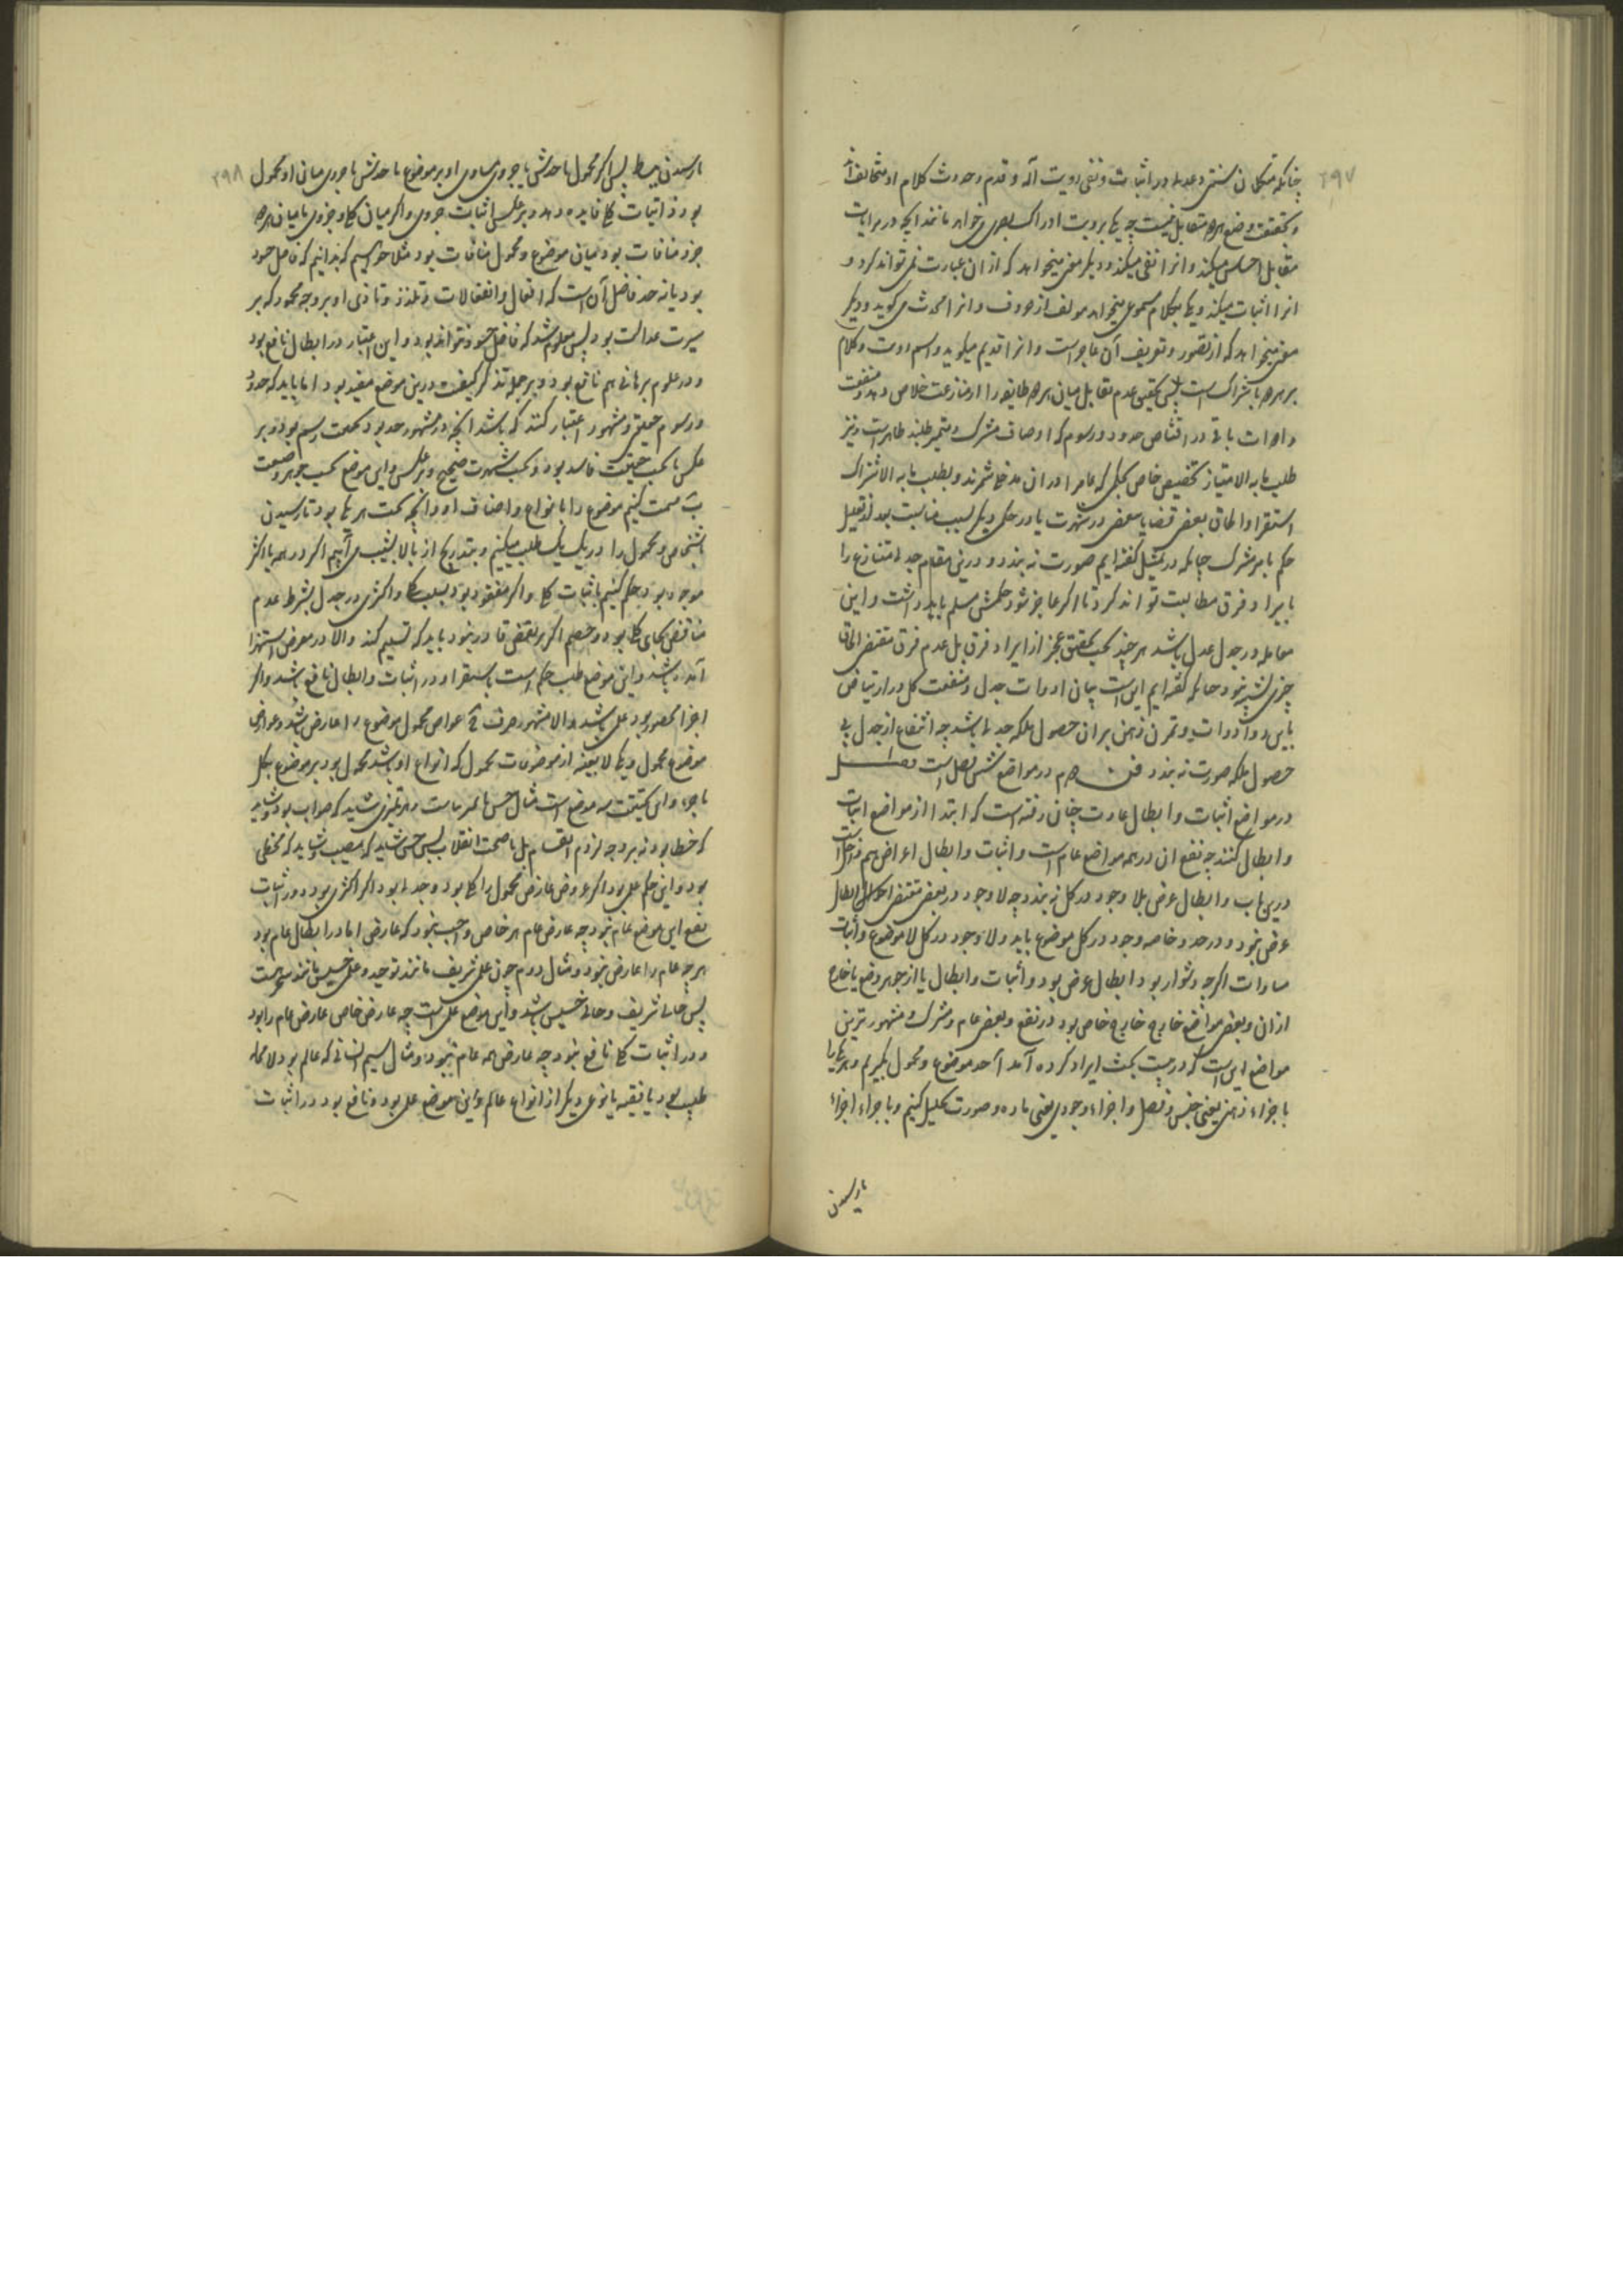 ۲۹۷
چنانکه متکلمان سنتی و عدلی در اثبات و نفی رویت اله و قدم و حدوث کلام او متخالف‌اند
و بحقیقت وضع هر دو متقابل نیست چه یکی برویت ادراک بصری میخواهد مانند آنچه در مرایات
مقابل احساس میکند و انرا نفی میکند و دیگر معنی میخواهد که از ان عبارت نمی تواند کرد و
انرا اثبات میکند و یکی بکلام مسموعی میخواهد مولف از حروف و انرا محدث می کوید و دیگر
معنی میخواهد که از تصور و تعریف آن عاجز است و انرا قدیم میکوید و اسم رویت و کلام
بر هر دو باشتراک است پس تحقیق عدم تقابل میان هر دو طایفه را از منازعت خلاص دهد و منفعت
ادوات باقی در اقتناص حدود و رسوم که اوصاف مشترک و متمیز طلبند ظاهر است و نیز
طلب ما به الامتیاز تخصیص خاص بحکمی که عام را در ان مدخل شمرند و بطلب ما به الاشتراک
استقرا و الحاق بعضی قضایا ببعضی در شهرت یا در حکمی دیگر بسبب مناسبت بود و تعلیل
حکم بامر مشترک چنانکه در تمثیل گفته ایم صورت نه بندد و درین مقام جدلی متنازع را
بایراد فرق مطالبت تواند کرد تا اگر عاجز شود حکمش مسلم باید داشت و این
معامله در جدل عدل باشد هر چند بحسب تحقیق عجز از ایراد فرق بل عدم فرق مقتضی الحاق
چیزی نشود چنانکه گفته ایم این است بیان ادوات جدل و منفعت کل در ارتیاض
باین دو ادوات و تمرن ذهن بر ان حصول ملکه جدلی باشد چه انتفاع از جدل بی
حصول ملکه صورت نه بندد فن دوم در مواضع شش فصل است فصل
در مواضع اثبات و ابطال عادت چنان رفته است که ابتدا از مواضع اثبات
و ابطال کنند چه نفع ان در همه مواضع عام است و اثبات و ابطال اعراض هم داخل است
درین باب و ابطال عرض بلا وجود در کل نه بندد چه لا وجود در بعضی مقتضی ابطال
عرض نبود و در حد و خاصه وجود در کل موضوع باید و لا وجود در کل لا موضوع و اثبات
مساوات اگرچه دشوار بود ابطال عرض بود و اثبات و ابطال یا از جوهر وضع یا خارج
ازان و بعضی مواضع خارج خارج خاص بود در نفع و بعضی عام و مشترک و مشهورترین
مواضع این است که در مبحث ایراد کرده آمد آحد موضوع و محمول بگیریم و هر یکی را
باجزاء ذهنی یعنی جنس و فصل و اجزاء وجودی یعنی ماده و صورت تحلیل کنیم و باجزاء اجزاء
تا رسیدن
۲۹۸
تا رسیدن ببسایط پس اگر محمول یا حدش یا جزوی مساوی او بر موضوع یا حدش یا جزوی میان او محمول
بود در اثبات کلی فایده دهد و بر عکس اثبات جزوی و اگر میان کلی و جزوی یا میان هر دو
جزو منافات بود میان موضوع و محمول منافات بود مثلا خواهیم که بدانیم که فاضل حسود
بود یا نه حد فاضل آن است که افعال و انفعالات و تلذذ و تاذی او بر وجه محمود که بر
سیرت عدالت بود پس معلوم شد که فاضل حسود نتواند بود و این اعتبار در ابطال نافع بود
و در علوم برهانی هم نافع بود و بر جمله تذکر کیفیت درین موضع مفید بود اما باید که حدود
و رسوم حقیقی و مشهور اعتبار کنند که باشد آنچه در مشهور حد بود بحقیقت رسم بود و بر
عکس یا بحسب حقیقت فاسد بود و بحسب شهرت صحیح و برعکس و این موضع بحسب جوهر وضعست
ب قسمت کنیم موضوع را بانواع و اصناف او و آنچه تحت هر یکی بود تا رسیدن
باشخاص و محمول را در یک یک طلب میکنیم و بتدریج از بالا بشیب می آییم اگر در همه یا اکثر
موجود بود حکم کنیم باثبات کلی و اگر مفقود بود بسلب کلی و اکثری در جدل بشرط عدم
مناقض بجای کلی بود و خصم اگر بر نقض قادر نبود باید که تسلیم کند و الا در معرض استهزا
آمده باشد و این موضع طلب حکم است باستقرا و در اثبات و ابطال نافع باشد و اگر
اجزا محصور بود علمی باشد و الا مشهور صرف ج عوارض محمول موضوع را عارض باشد و عوارض
موضوع محمول و یکی لا بعینه از موضوعات محمول که انواع او باشند محمول بود بر موضوع بکل
یا جزء و این بحقیقت سه موضع است مثال حس تمیز ماست و هر تمیزی شاید که صواب بود و شاید
که خطا بود نه بر وجه لزوم انقسام بل با صحت انقلاب پس حس شاید که مصیب و شاید که مخطی
بود و این حکم علمی بود اگر عروض عارض محمول را کلی بود و جدلی بود اگر اکثری بود و در اثبات
نفع این موضع عام نبود چه عارض عام هر خاص واجب نبود که عارض اما در ابطال عام بود
هر چه عام را عارض نبود و مثال دوم چون علمی شریف مانند توحید و علمی خسیس مانند هست
پس حالی شریف و حالی خسیس باشد و این موضع علمی است چه عارض خاص عارض عام را بود
و در اثبات کلی نافع نبود چه عارض همه عام نبود و مثال سیم انسانی که عالم بود لا محاله
طبیب بود یا فقیه یا نوعی دیگر از انواع عالم و این موضع علمی بود و نافع بود در اثبات